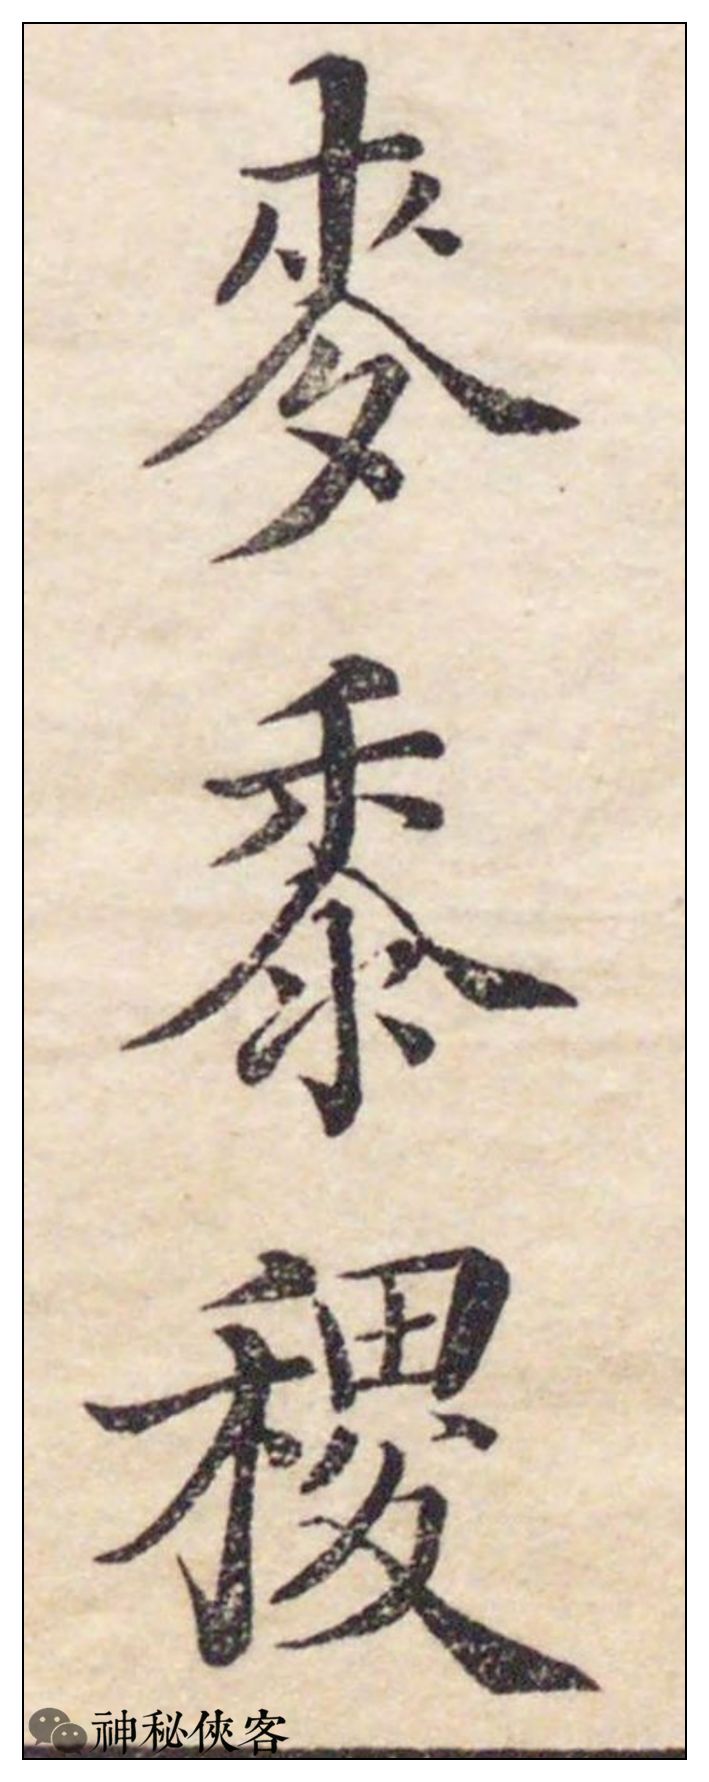 麥黍稷
神秘俠客